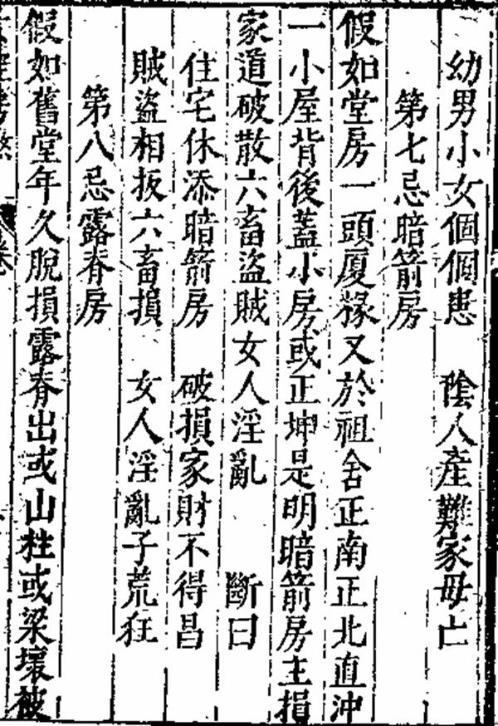 幼男小女個個患　陰人產難家毋亡
第七忌暗箭房
假如堂房一頭廈椽又於祖舍正南正北直沖
一小屋背後蓋小房或正坤是明暗箭房主損
家道破散六畜盜賊女人淫亂　斷曰
住宅休添暗箭房　破損家財不得昌
賊盜相扳六畜損　女人淫亂子荒狂
第八忌露脊房
假如舊堂年久脫損露脊出或山柱或梁壞被